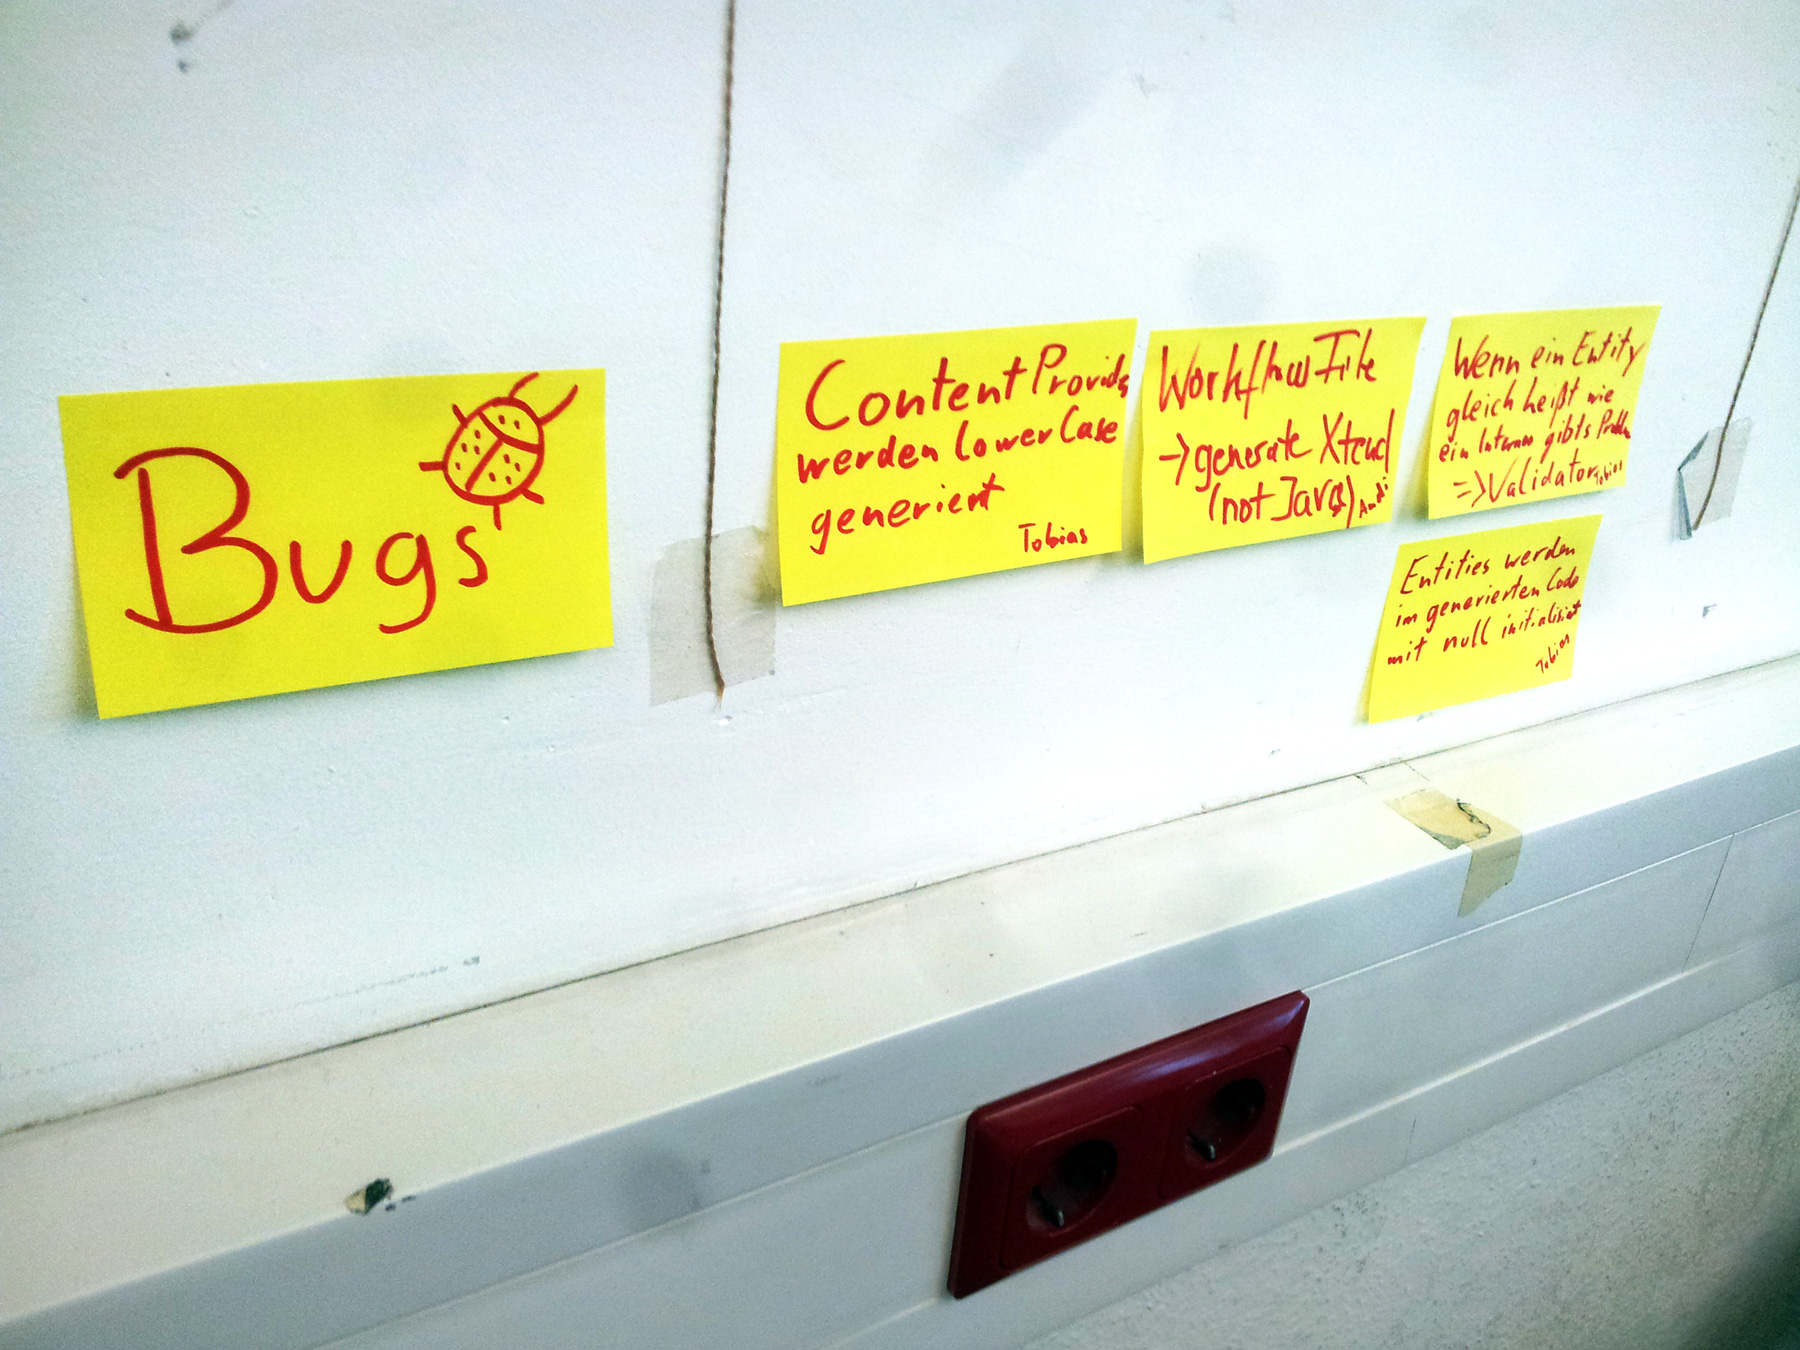 Bugs
ContentProvids
werden lowerCase
generiert
Tobias
Workflow File
->generate Xtend
(not Java) Andi
Wenn ein Entity
gleich heißt wie
ein gibts
=>Validator Tobias
Entities werden
im generierten Code
mit null initialisiert
Tobias